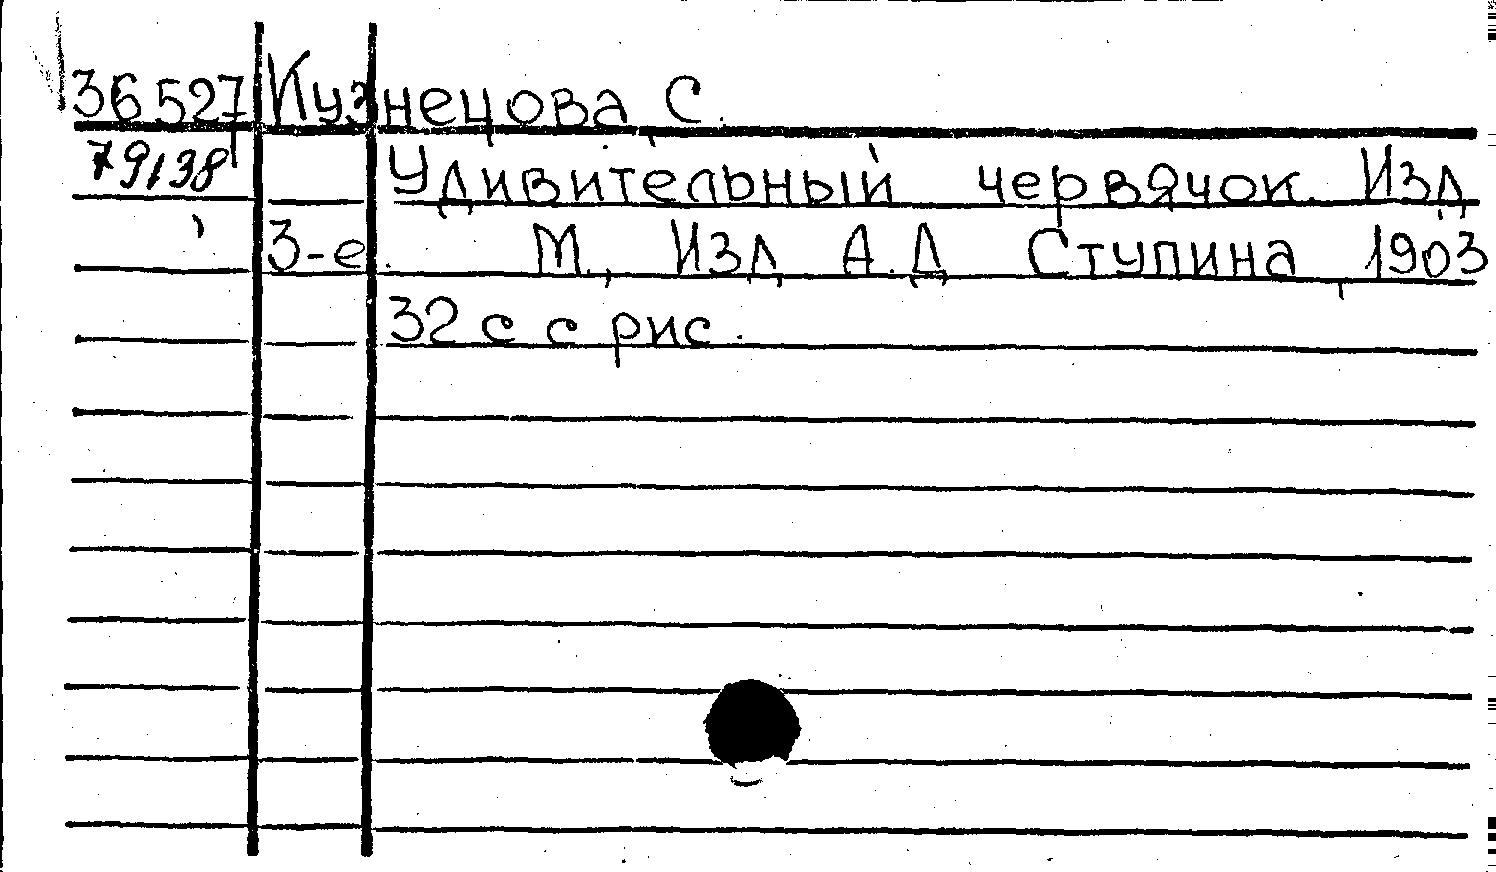 36527 Кузнецова С.
79138 Удивительный червячок. Изд
3-е. М., Изд А.Д Ступина, 1903
32 с с рис.